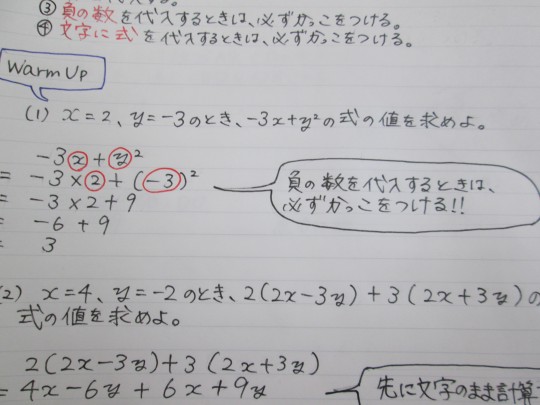 ③ 負の数を代入するときは、必ずかっこをつける。
④ 文字に式を代入するときは、必ずかっこをつける。
Warm Up
(1) x=2、y=-3のとき、-3x+y²の式の値を求めよ。
-3x+y²
= -3×2+(-3)²
= -3×2+9
= -6+9
= 3
負の数を代入するときは、
必ずかっこをつける!!
(2) x=4、y=-2のとき、2(2x-3y)+3(2x+3y)の
式の値を求めよ。
2(2x-3y)+3(2x+3y)
= 4x-6y+6x+9y
先に文字のまま計算